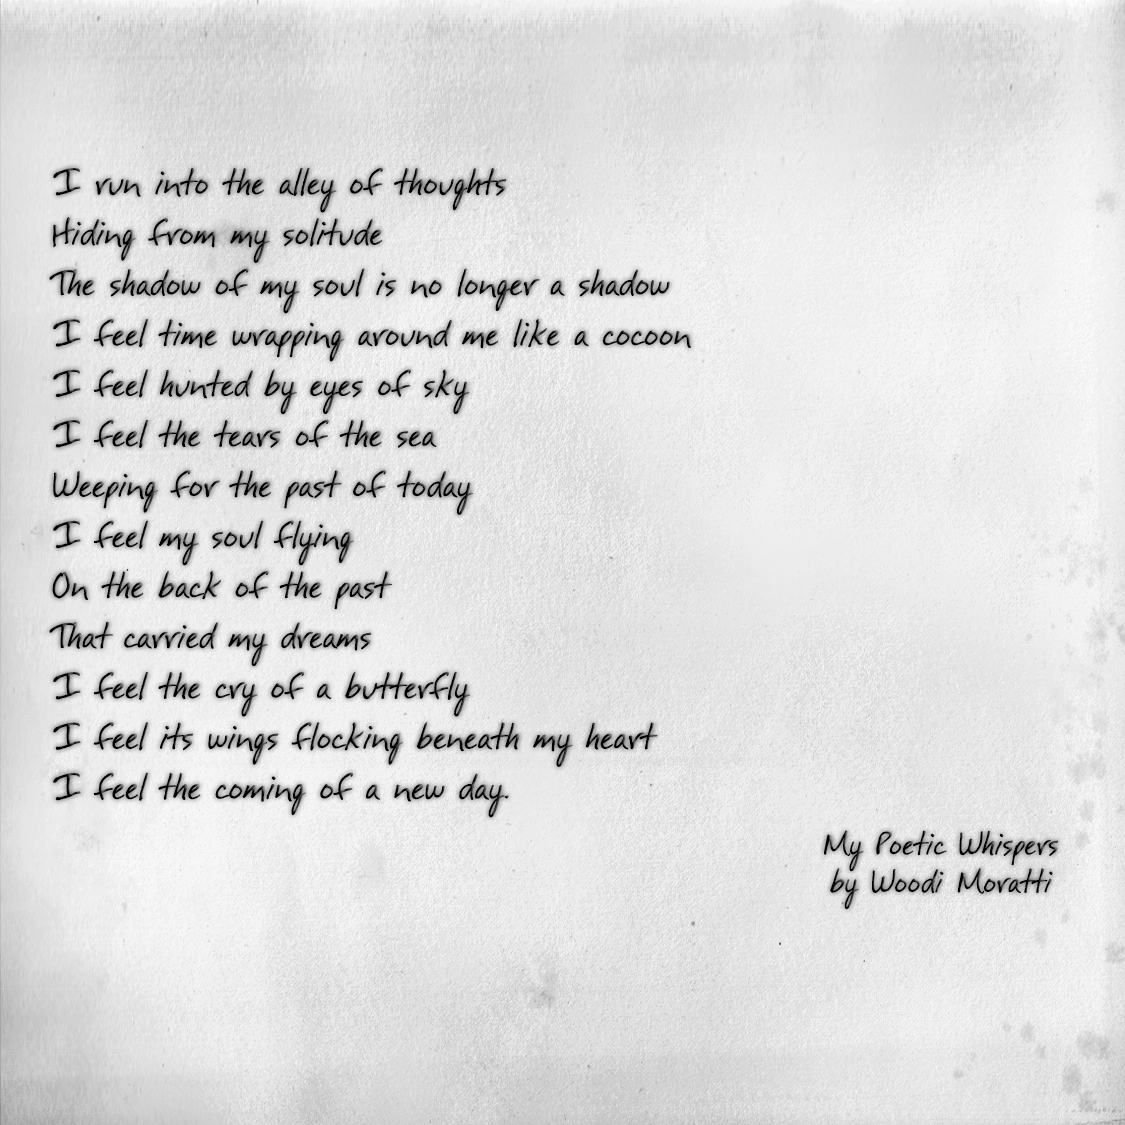 I run into the alley of thoughts
Hiding from my solitude
The shadow of my soul is no longer a shadow
I feel time wrapping around me like a cocoon
I feel hunted by eyes of sky
I feel the tears of the sea
Weeping for the past of today
I feel my soul flying
On the back of the past
That carried my dreams
I feel the cry of a butterfly
I feel its wings flocking beneath my heart
I feel the coming of a new day.
My Poetic Whispers
by Woodi Moratti